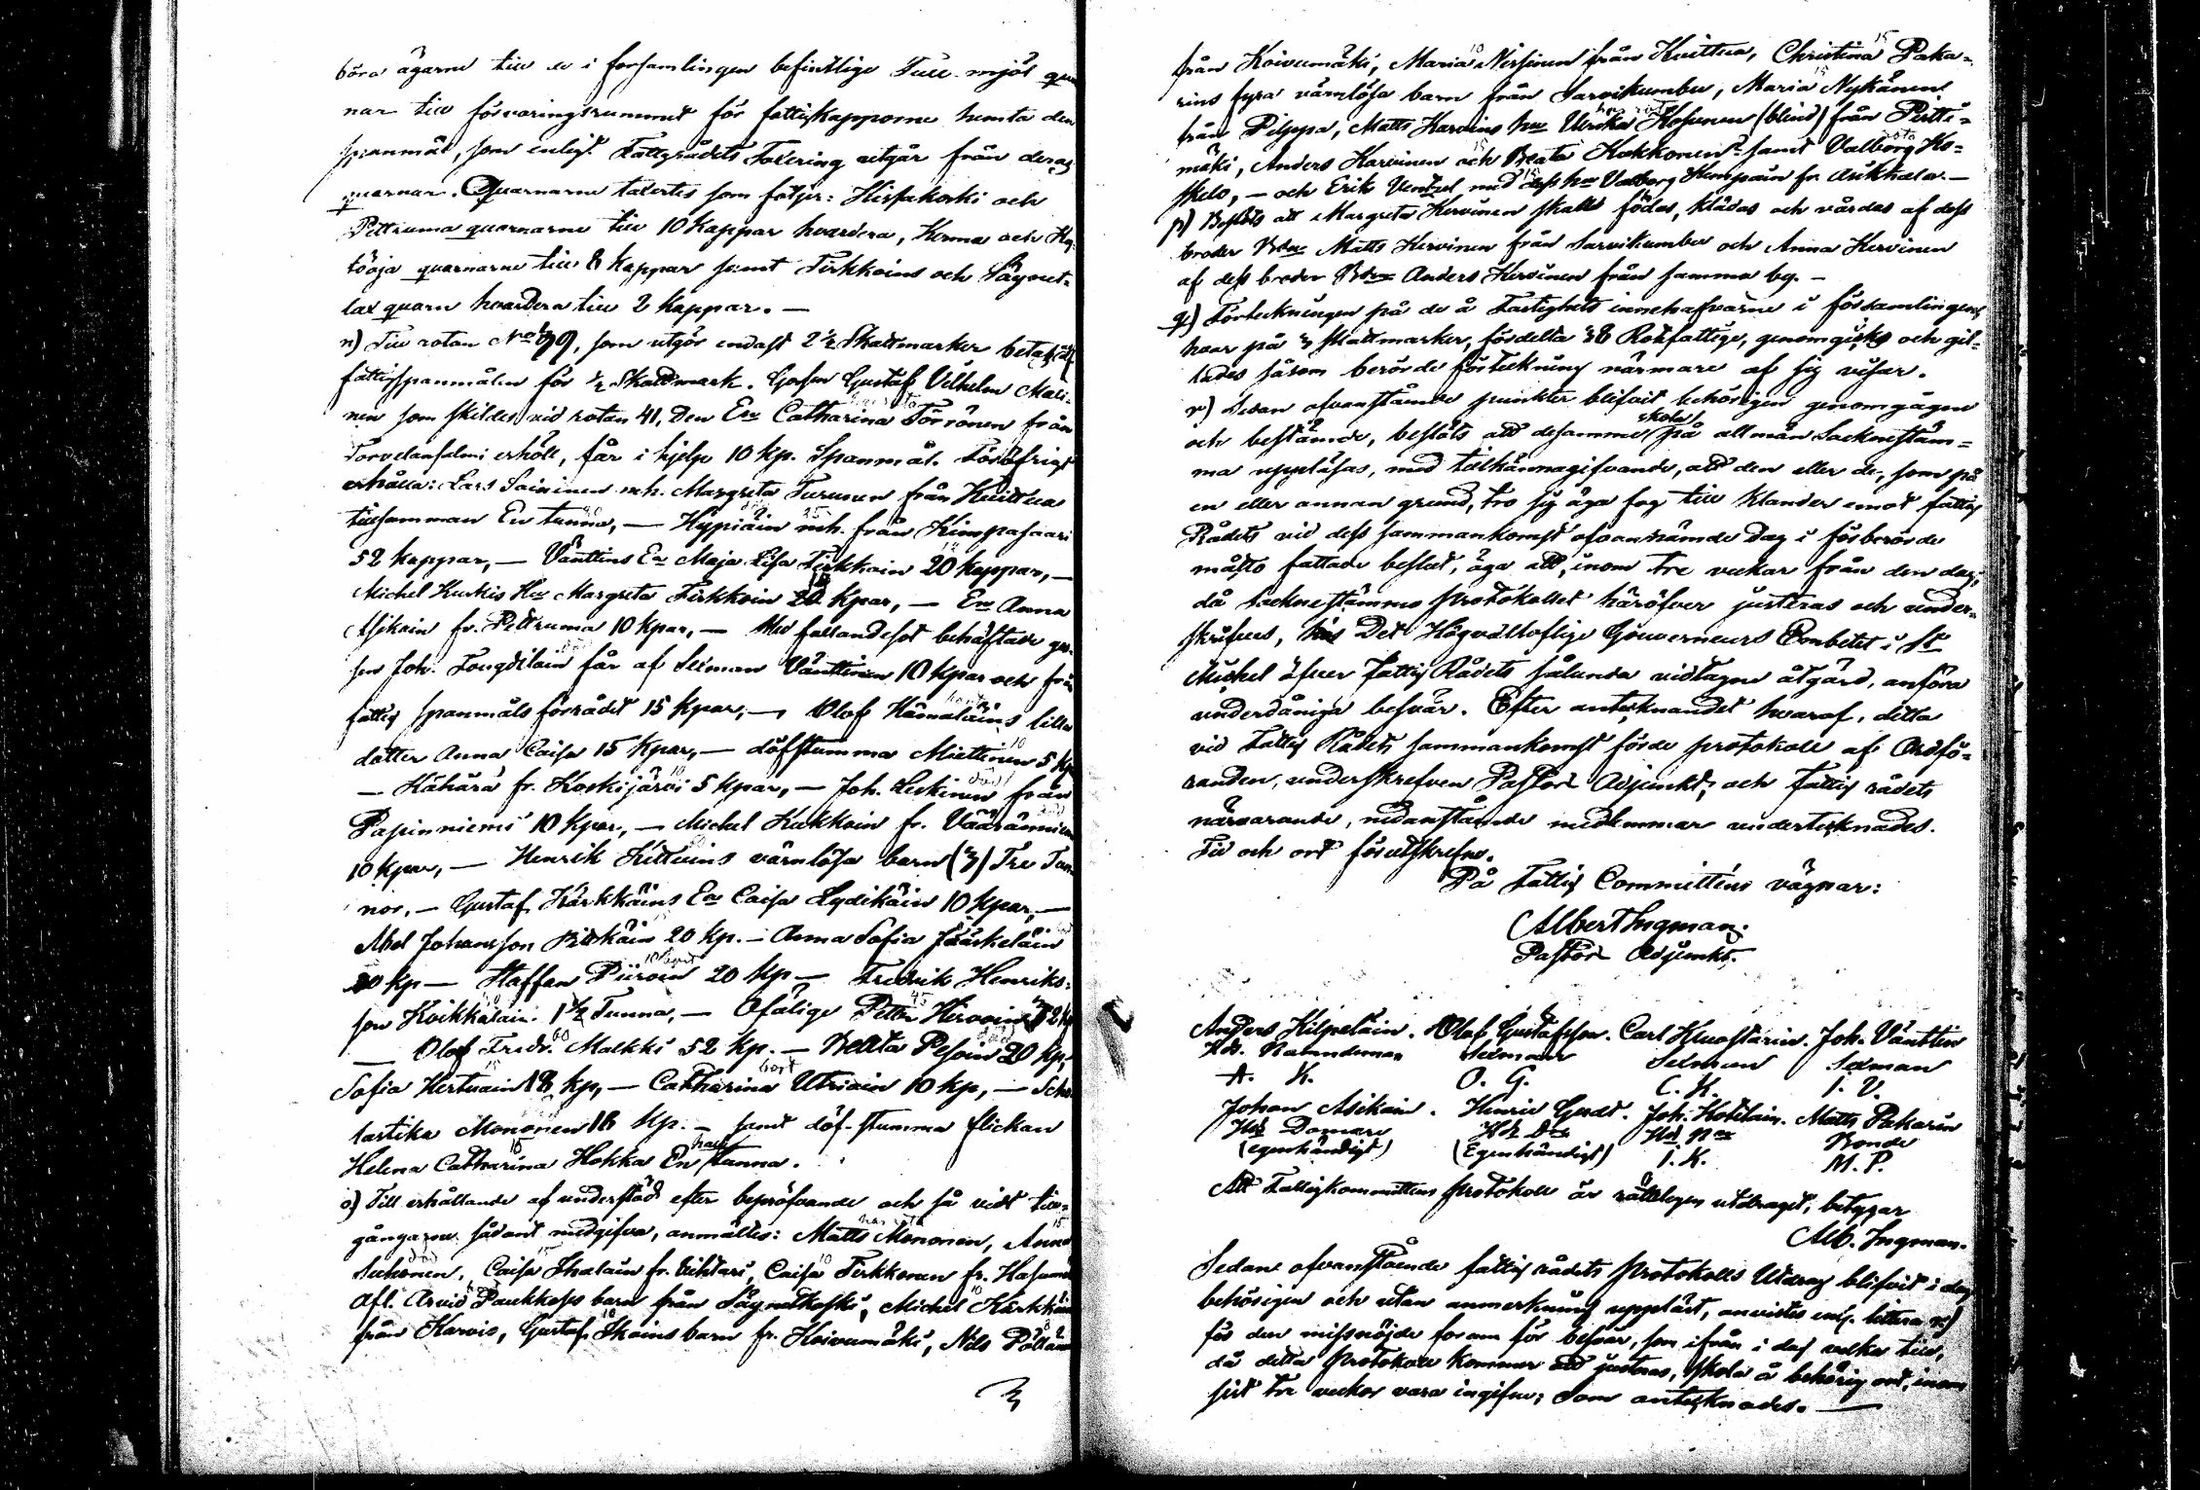 böra ägarne till de i församlingen befintlige Tull mjöl qvar
nar till förvaringsrummet för fattigkapporne hemta den
spanmål, som enligt Fattigrådets Taxering utgår från deras
quarnar. Quarnarne taxertes som följer: Hirsikoski och
Pettruma quarnarne till 10 Kappar hvardera, Kerma och
quarnarne till 8 Kappar samt Tirkkoins och
lax quarn hvardera till 2 kappar. —
n) Till rotan No 79, som utgör endast 2 1/2 Skattmarker betalas af
fattigspanmålen för 1/2 Skattmark. Gossen Gustaf Vilhelm Mali-
nen som skildes vid rotan 41, den Enk. Catharina Törrönen från
erhöll, får i hjelp 10 kp. Spanmål. Föröfrigt
erhålla: Lars Saininen mh. Margreta Turunen från Kuittua
tillsamman En tunna, — Hypiäin mh. från Kimpasaari
52 kappar, — Vänttins En Maja Lisa Tirkkoin 20 kappar, —
Michel Kurkis Hu Margreta Tirkkoin 20 Kpar, — En Anna
Asikain fr. Pettruma 10 kpar, — Med fallandesot behäftade gos-
sen Joh. får af Sexman Vänttinen 10 kpar och från
fattig spanmåls förrådet 15 kpar, — Olof Hämäläins lilla
dotter Anna Caisa 15 kpar, — döfstumma Miettinen 5 kp
— Kähärä fr. Koskijärvi 5 kpar, — Joh. Leskinen från
Papinniemi 10 kpar, — Michel Kukkoin fr. Vääränniemi
10 kpar, — Henrik värnlösa barn (3) Tre Tun-
nor, — Gustaf Kärkkäins En Caisa Lydikäin 10 kpar, —
Abel Johansson 20 kp. — Anna Sofia Jääskeläin
20 kp — Staffan Piiroin 20 kp — Fredrik Henriks-
son Koikkalain 1 1/2 Tunna, — Ofälige Petter Hirvoin 52 kp
— Olof Fredr. Malkki 52 kp. — Beata Pesoin 20 kp,
Sofia Kertuain 18 kp, — Catharina Utriain 10 kp, — Scho-
lastika Mononen 18 kp. — samt döf-stumma flickan
Helena Catharina Hokka En half tunna.
o) Till erhållande af understöd efter bepröfvande och så vidt till-
gångarne sådant medgifva, anmältes: Matts Mononen, Anna
Suhonen, Caisa Ihalain fr. Vihtari, Caisa Tirkkonen fr.
Afl. Arvid Paukkoses barn från Säynetkoski, Michel Kärkkäin
från Karvio, Gustaf Ikoins barn fr. Koivumäki, Nils Pöllän
från Koivumäki, Maria Nissinen från Kuittua, Christina Paka-
rins fyra värnlösa barn från Sarvikumbu, Maria Nykänen
från Pilppa, Matts Karvins hu Ulrika Kosunen (blind) från Pertti-
mäki, Anders Karvinen och Beata Kokkonen samt Valborg Ko-
skelo, — och Erik Ventzel med dess hu Valborg Kempain fr. —
p) Beslöts att Margreta Kervinen skall födas, klädas och vårdas af dess
broder Bden Matts Kervinen från Sarvikumbu och Anna Kervinen
af dess broder Bden Anders Kervinen från samma by. —
q) Förteckningen på de å Fastighets innehafvarne i församlingen,
hvar på 3 skattmarker, fördelta 88 Rotfattige, genomgicks och gil-
lades såsom berörde förteckning närmare af sig visar.
r) Sedan ofvanstående punkter blifvit behörigen genomgågne
och bestämde, beslöts att desamme skola på allmän Sockenstäm-
ma uppläsas, med tillkännagifvande, att den eller de, som på
en eller annan grund, tro sig äga fog till klander emot fattig
Rådets vid dess sammankomst ofvannämde dag i förberörde
måtto fattade beslut, äga att, inom tre veckor från den dag,
då sockenstämmo protokollet häröfver justeras och under-
skrifves, hos Det Högvällofliga Gouverneurs Embetet i St
Michel öfver Fattig Rådets sålunda vidtagne åtgärd, anföra
underdåniga besvär. Efter antecknandet hvaraf, detta
vid Fattig Rådets sammankomst förde protokoll af Ordfö-
randen, underskrefven Pastors Adjunkt, och fattig rådets
närvarande, nedanstående medlemmar undertecknades.
Tid och ort förutskrefne.
På Fattig Committéns vägnar:
Albert Ingman.
Pastors Adjunkt.
Anders Kilpeläin. Olof Gustafsson. Carl Joh. Vänttin
Hd. Nämndeman Sexman Sexman Sexman
A. K. O. G. C. K. I. V.
Johan Asikain. Henric Joh. Kotilain. Matts Pakarin
Hd Domare Bonde
(egenhändigt) (Egenhändigt) I. K. M. P.
Att Fattigkommittéens protokoll är rätteligen utdraget, betygar
Alb. Ingman.
Sedan ofvanstående fattig rådets Protokolls Utdrag blifvit i dag
behörigen och utan anmerkning uppläst, anvistes enl. littera r)
för den missnöjde forum för besvär, som ifrån i dag vecka till,
då detta Protokoll kommer att justeras, skola å behörig ort, inom
sist tre veckor vara ingifne; Som antecknades. —